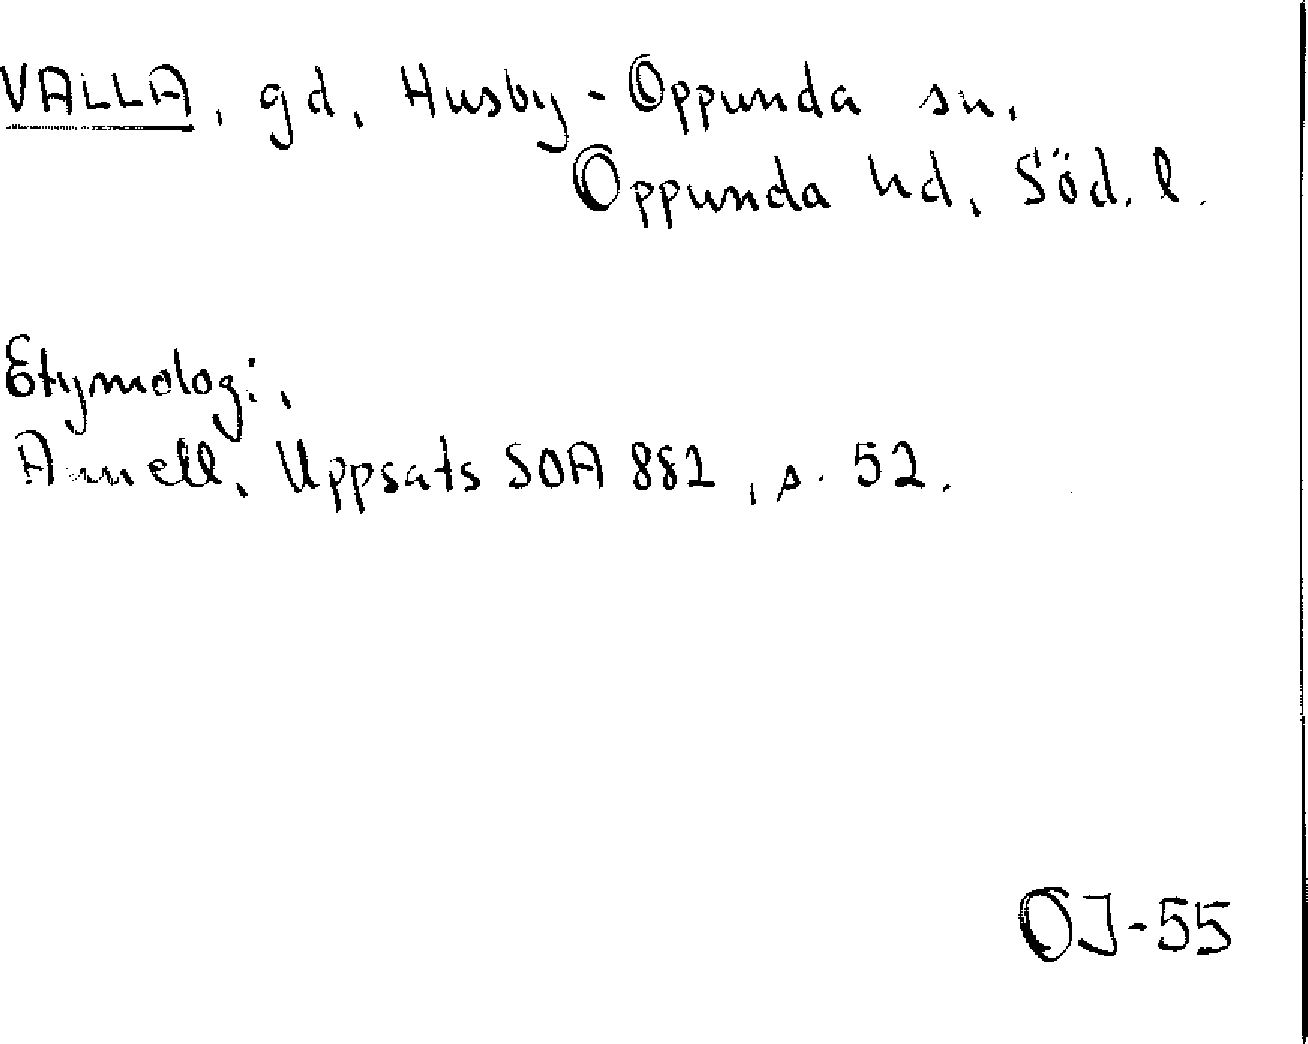 VALLA, gd, Husby-Oppunda sn,
Oppunda hd, Söd. l.
Etymologi,
Annell, Uppsats SOA 882, s. 52.
OJ-55